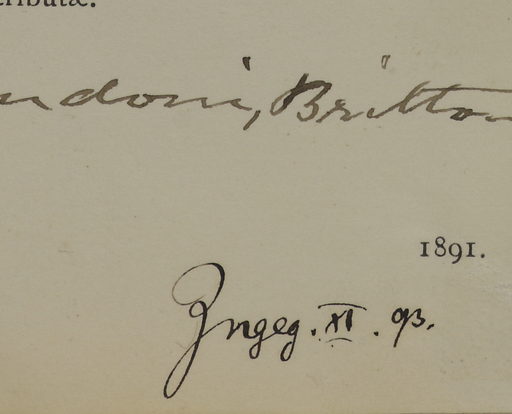 tributæ.
ndoni, Britton
1891.
Ingeg. XI. 93.